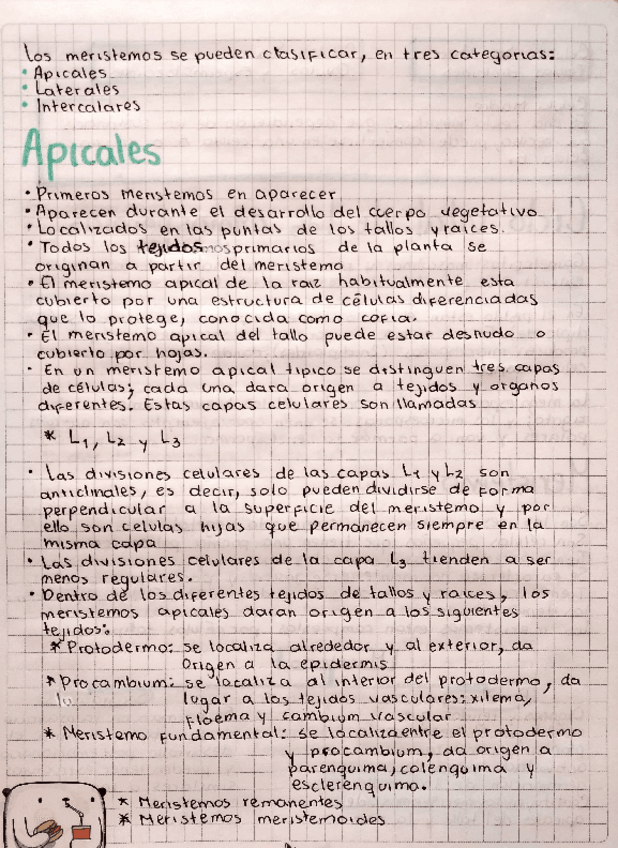 Los meristemos se pueden clasificar, en tres categorias:
• Apicales
• Laterales
• Intercalares
Apicales
• Primeros meristemos en aparecer
• Aparecen durante el desarrollo del cuerpo vegetativo
• Localizados en las puntas de los tallos y raices.
• Todos los tejidos primarios de la planta se
originan a partir del meristemo
• El meristemo apical de la raiz habitualmente esta
cubierto por una estructura de células diferenciadas
que lo protege, conocida como cofia.
• El meristemo apical del tallo puede estar desnudo o
cubierto por hojas.
• En un meristemo apical tipico se distinguen tres capas
de células; cada una dara origen a tejidos y organos
diferentes. Estas capas celulares son llamadas
* L1, L2 y L3
• Las divisiones celulares de las capas L1 y L2 son
anticlinales, es decir, solo pueden dividirse de forma
perpendicular a la superficie del meristemo y por
ello son celulas hijas que permanecen siempre en la
misma capa
• Las divisiones celulares de la capa L3 tienden a ser
menos regulares.
• Dentro de los diferentes tejidos de tallos y raices, los
meristemos apicales daran origen a los siguientes
tejidos:
* Protodermo: se localiza alrededor y al exterior, da
origen a la epidermis
* Procambium: se localiza al interior del protodermo, da
lugar a los tejidos vasculares: xilema,
floema y cambium vascular
* Meristemo fundamental: se localiza entre el protodermo
y procambium, da origen a
parenquima, colenquima y
esclerenquima.
* Meristemos remanentes
* Meristemos meristemoides